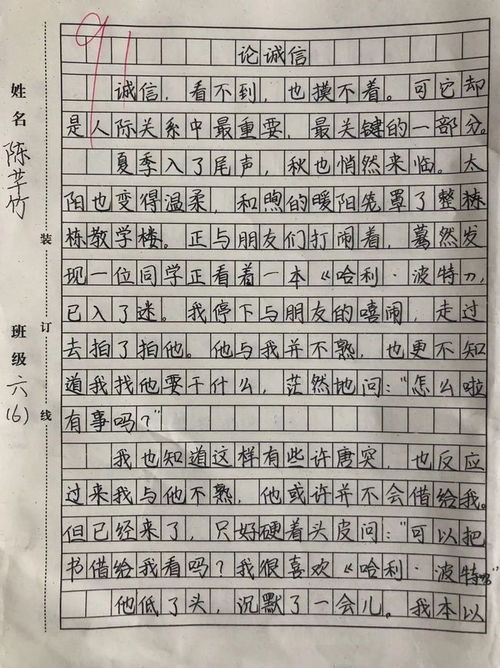 91
论诚信
诚信，看不到，也摸不着。可它却
是人际关系中最重要，最关键的一部分。
夏季入了尾声，秋也悄然来临。太
阳也变得温柔，和煦的暖阳笼罩了整栋
栋教学楼。正与朋友们打闹着，蓦然发
现一位同学正看着一本《哈利·波特》，
已入了迷。我停下与朋友的嘻闹，走过
去拍了拍他。他与我并不熟，也更不知
道我找他要干什么，茫然地问：“怎么啦
有事吗？”
我也知道这样有些许唐突，也反应
过来我与他不熟，他或许并不会借给我。
但已经来了，只好硬着头皮问：“可以把
书借给我看吗？我很喜欢《哈利·波特》”
他低了头，沉默了一会儿。我本以
姓名
陈芊竹
班级
六(6)
装
订
线